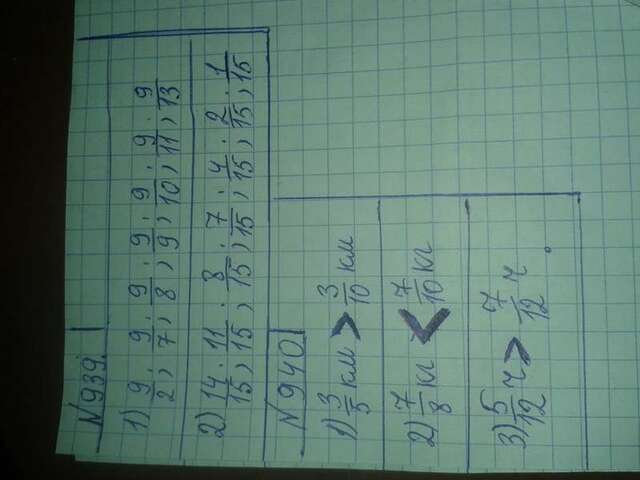 №939.
1) 9/2; 9/7; 9/8; 9/9; 9/10; 9/11; 9/13
2) 14/15; 11/15; 8/15; 7/15; 4/15; 2/15; 1/15
№940
1) 3/5 км > 3/10 км
2) 7/8 кг < 7/10 кг
3) 5/12 ч > 7/12 ч.